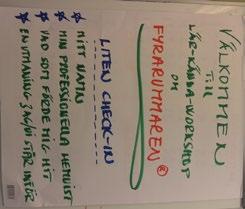 VÄLKOMMEN
TILL
LÄR-KÄNNA-WORKSHOP
OM
FYRARUMMAREN ®
LITEN CHECK-IN
* MITT NAMN
* MIN PROFESSIONELLA HEMVIST
* VAD SOM FÖRDE MIG HIT
* EN UTMANING JAG/VI STÅR INFÖR